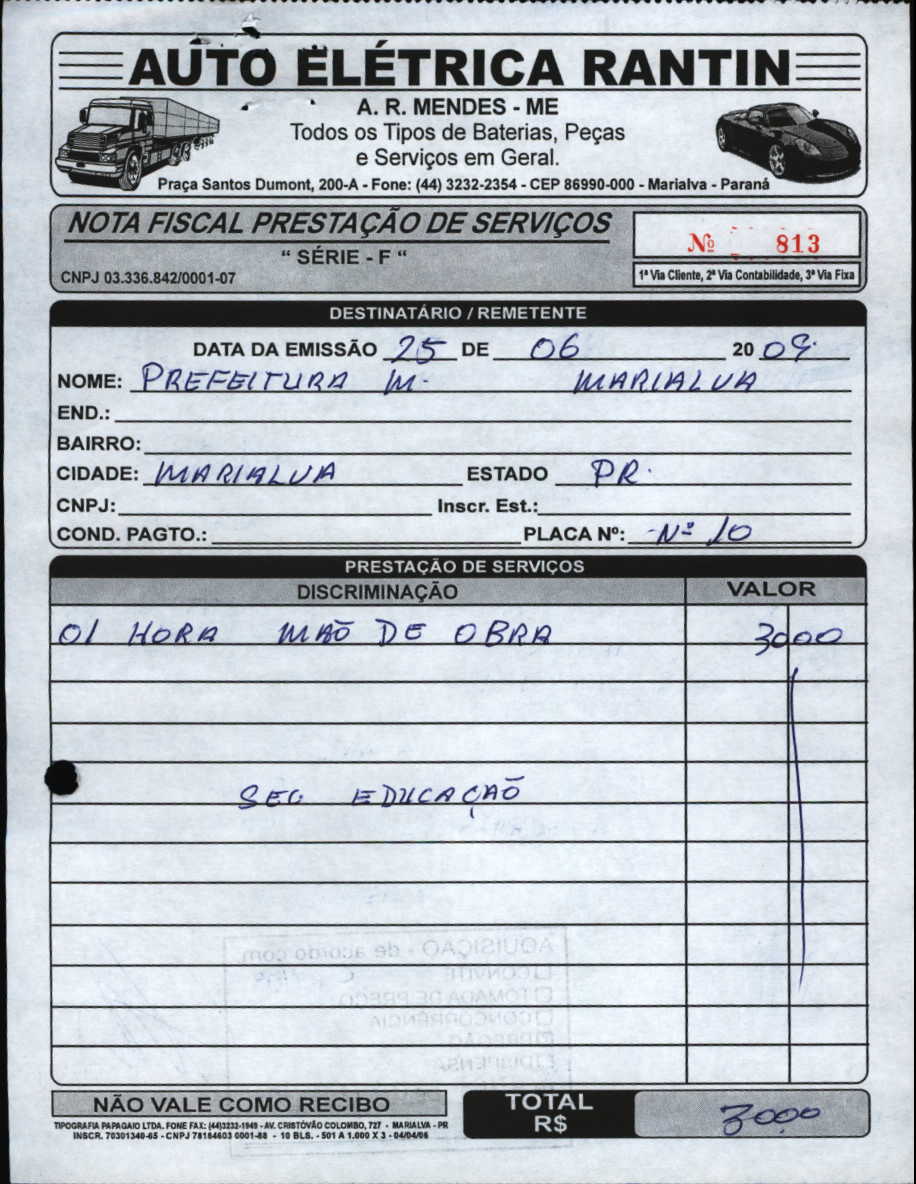 AUTO ELÉTRICA RANTIN
A. R. MENDES - ME
Todos os Tipos de Baterias, Peças
e Serviços em Geral.
Praça Santos Dumont, 200-A - Fone: (44) 3232-2354 - CEP 86990-000 - Marialva - Paraná
NOTA FISCAL PRESTAÇÃO DE SERVIÇOS
“ SÉRIE - F “
Nº 813
CNPJ 03.336.842/0001-07
1ª Via Cliente, 2ª Via Contabilidade, 3ª Via Fixa
DESTINATÁRIO / REMETENTE
DATA DA EMISSÃO 25 DE 06 20 09
NOME: PREFEITURA M. MARIALVA
END.:
BAIRRO:
CIDADE: MARIALVA ESTADO PR.
CNPJ: Inscr. Est.:
COND. PAGTO.: PLACA Nº: Nº 10
PRESTAÇÃO DE SERVIÇOS
DISCRIMINAÇÃO VALOR
01 HORA MÃO DE OBRA 3000
SEC EDUCAÇÃO
AQUISIÇÃO - de acordo com
CONVITE
TOMADA DE PREÇO
CONCORRÊNCIA
PREGÃO
DISPENSA
NÃO VALE COMO RECIBO
TOTAL
R$ 3000
TIPOGRAFIA PAPAGAIO LTDA. FONE FAX: (44)3232-1949 - AV. CRISTÓVÃO COLOMBO, 727 - MARIALVA - PR
INSCR. 70301340-65 - CNPJ 78184603 0001-88 - 10 BLS. - 501 A 1.000 X 3 - 04/04/06